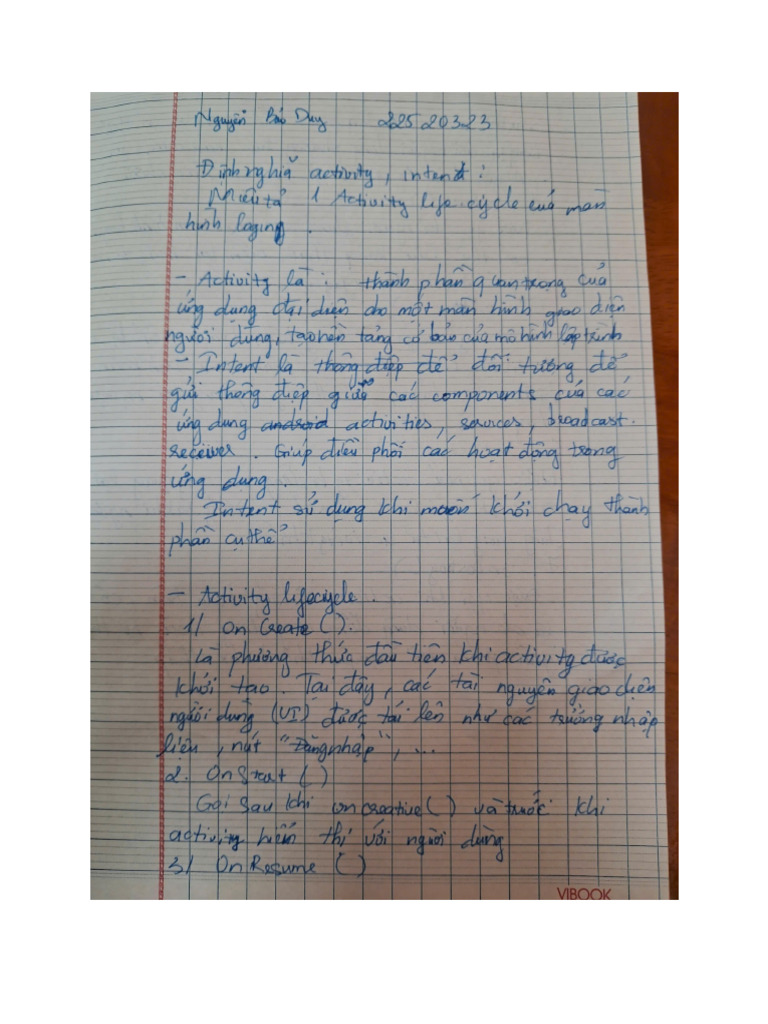 Nguyễn Bảo Duy 22520323
Định nghĩa activity, intent :
Miêu tả 1 Activity life cycle của màn
hình login .
- Activity là : thành phần quan trọng của
ứng dụng đại diện cho một màn hình giao diện
người dùng, tạo nền tảng cơ bản của mô hình lập trình
- Intent là thông điệp để đối tượng để
gửi thông điệp giữa các components của các
ứng dụng android activities, services, broadcast.
receiver . Giúp điều phối các hoạt động trong
ứng dụng .
Intent sử dụng khi muốn khởi chạy thành
phần cụ thể .
- Activity lifecycle .
1/ On Create ( ).
Là phương thức đầu tiên khi activity được
khởi tạo . Tại đây , các tài nguyên giao diện
người dùng (UI) được tải lên như các trường nhập
liệu , nút "Đăng nhập", ...
2. On Start ( )
Gọi sau khi oncreative( ) và trước khi
activity hiển thị với người dùng
3/ On Resume ( )
VIBOOK